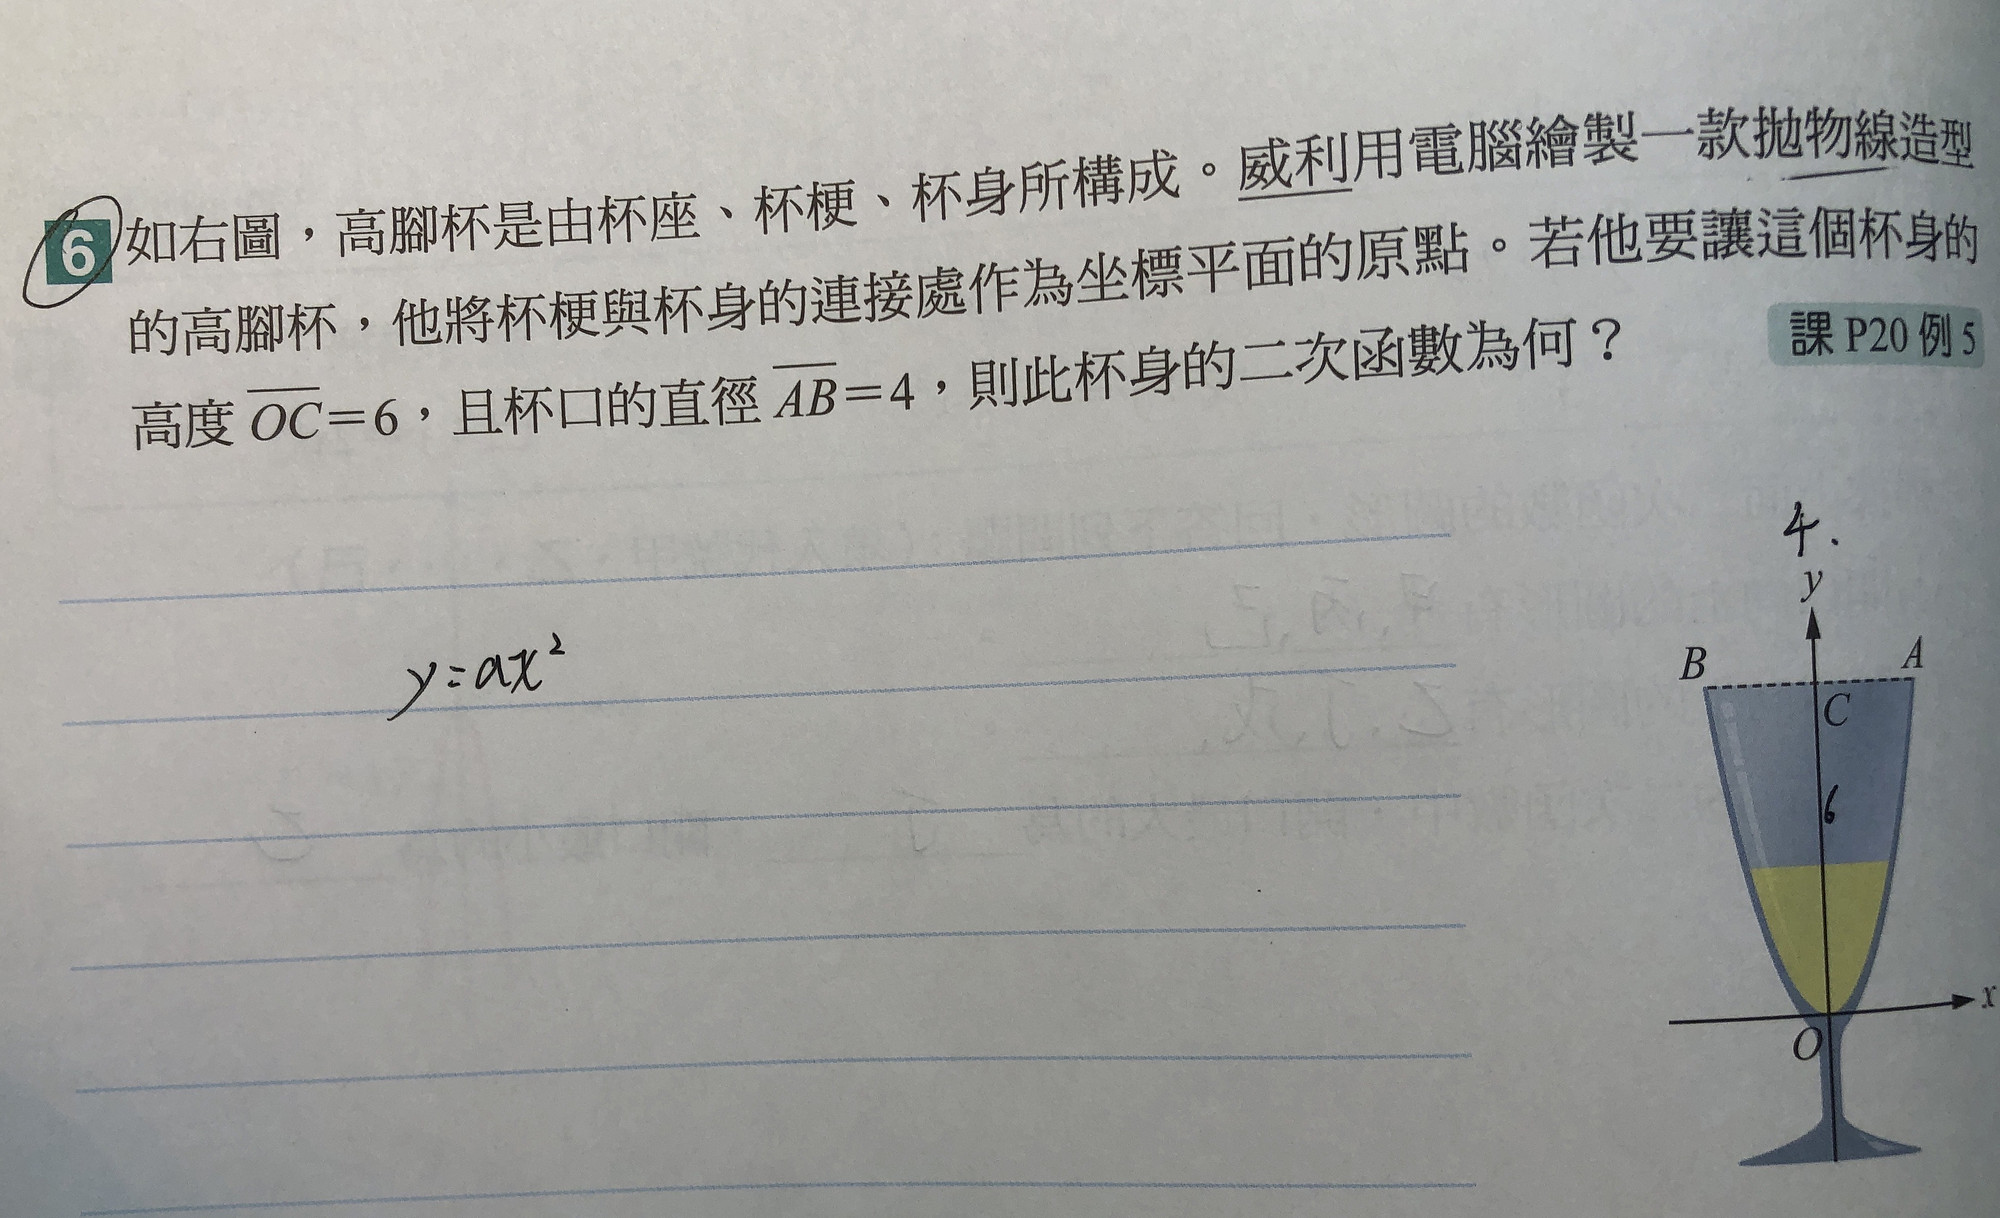 6 如右圖，高腳杯是由杯座、杯梗、杯身所構成。威利用電腦繪製一款拋物線造型
的高腳杯，他將杯梗與杯身的連接處作為坐標平面的原點。若他要讓這個杯身的
高度 OC=6，且杯口的直徑 AB=4，則此杯身的二次函數為何？
課 P20 例 5
4.
y
y=ax²
B
A
C
6
x
O